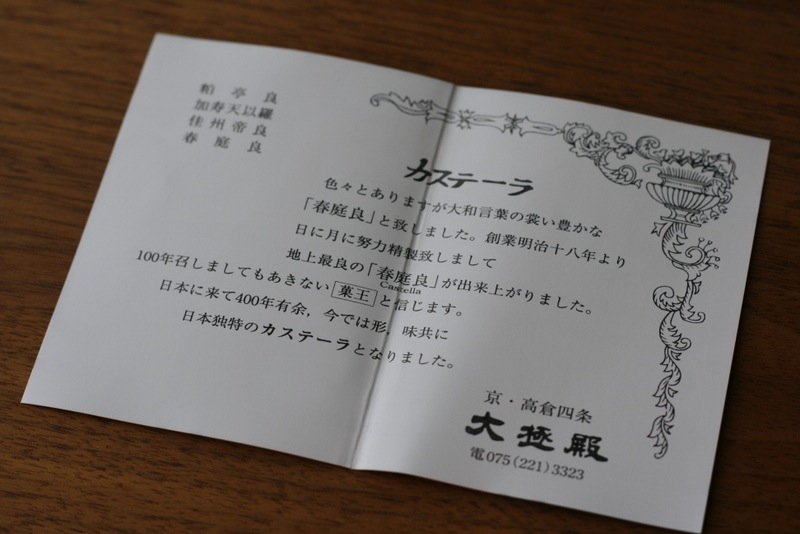 粕亭良
加寿天以羅
佳州帝良
春庭良
カステーラ
色々とありますが大和言葉の裳い豊かな
「春庭良」と致しました。創業明治十八年より
日に月に努力精製致しまして
地上最良の「春庭良」が出来上がりました。
Castella
100年召しましてもあきない菓王と信じます。
日本に来て400年有余，今では形，味共に
日本独特のカステーラとなりました。
京・高倉四条
大極殿
電075(221)3323